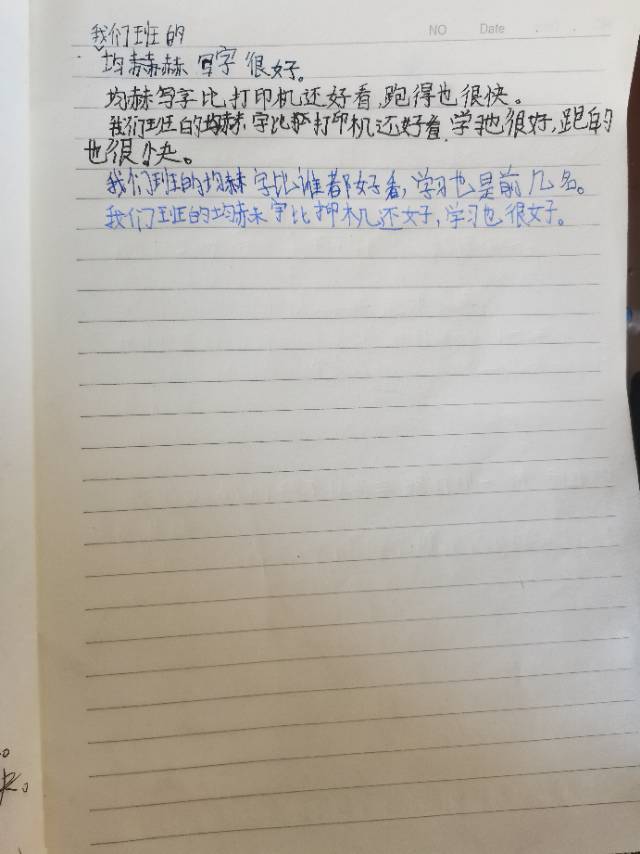 NO Date
我们班的
均赫赫 写字很好。
均赫写字比打印机还好看,跑得也很快。
我们班的均赫字比打印机还好看,学习也很好,跑的
也很快。
我们班的均赫字比谁都好看,学习也是前几名。
我们班的均赫字比打印机还好,学习也很好。
。
快。